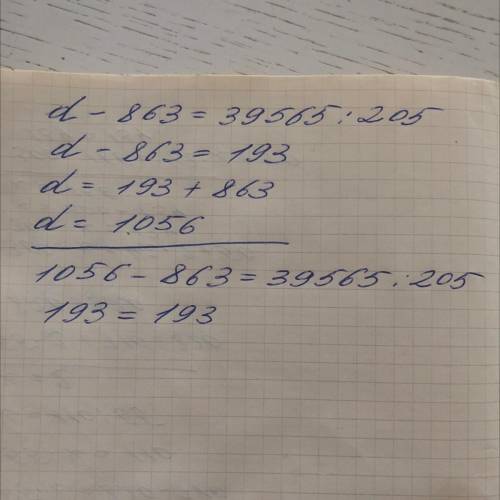 d - 863 = 39565 : 205
d - 863 = 193
d = 193 + 863
d = 1056
1056 - 863 = 39565 : 205
193 = 193